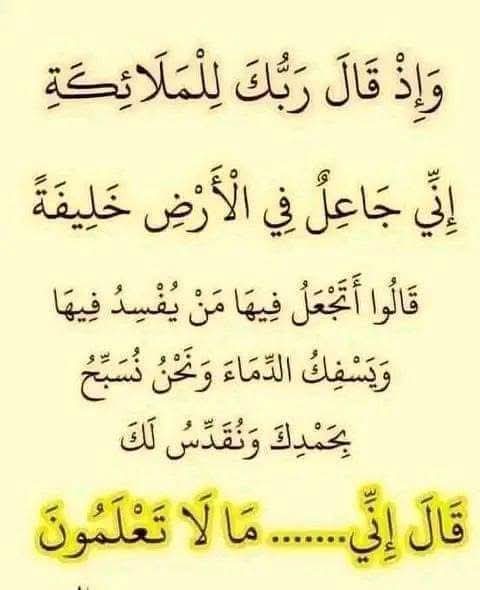 وَإِذْ قَالَ رَبُّكَ لِلْمَلَائِكَةِ
إِنِّي جَاعِلٌ فِي الْأَرْضِ خَلِيفَةً
قَالُوا أَتَجْعَلُ فِيهَا مَنْ يُفْسِدُ فِيهَا
وَيَسْفِكُ الدِّمَاءَ وَنَحْنُ نُسَبِّحُ
بِحَمْدِكَ وَنُقَدِّسُ لَكَ
قَالَ إِنِّي....... مَا لَا تَعْلَمُونَ